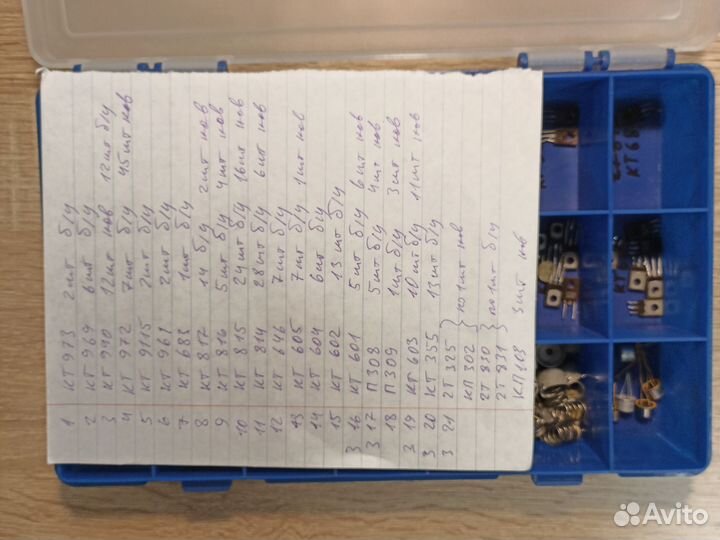 1 КТ 973 2 шт б/у
2 КТ 969 6 шт б/у
3 КТ 940 12 шт нов 12 шт б/у
4 КТ 972 7 шт б/у 45 шт нов
5 КТ 9115 2 шт б/у
6 КТ 961 2 шт б/у
7 КТ 683 1 шт б/у
8 КТ 817 14 б/у 2 шт нов
9 КТ 816 5 шт б/у 4 шт нов
10 КТ 815 24 шт б/у 16 шт нов
11 КТ 814 28 шт б/у 6 шт нов
12 КТ 646 7 шт б/у
13 КТ 605 7 шт б/у 1 шт нов
14 КТ 604 6 шт б/у
15 КТ 602 13 шт б/у
3 16 КТ 601 5 шт б/у 6 шт нов
3 17 П 308 5 шт б/у 4 шт нов
18 П 309 1 шт б/у 3 шт нов
3 19 КТ 603 10 шт б/у 11 шт нов
3 20 КТ 355 13 шт б/у
3 21 2Т 325 } по 1 шт нов
КП 302
2Т 830 } по 1 шт б/у
2Т 831
КП 103 3 шт нов
КТ68
Avito